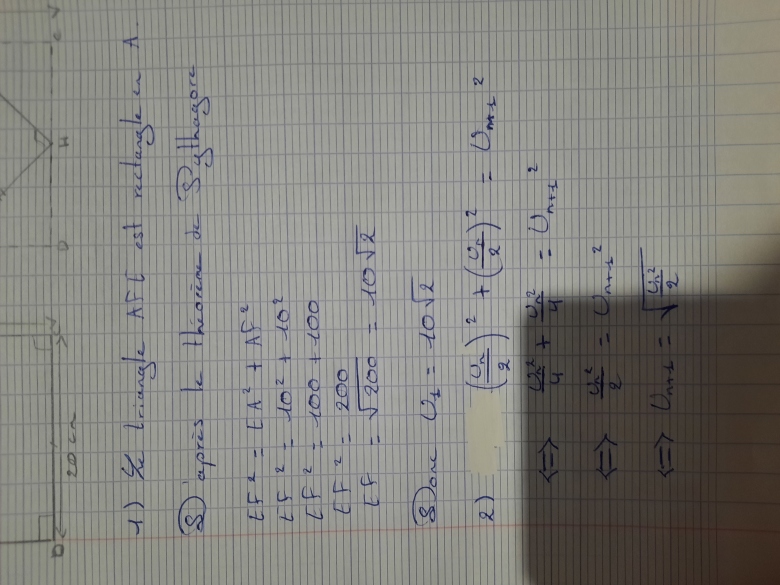 20 cm
1) Le triangle AFE est rectangle en A.
D'après le théorème de Pythagore
EF² = EA² + AF²
EF² = 10² + 10²
EF² = 100 + 100
EF² = 200
EF = √200 = 10√2
Donc U₁ = 10√2
2) (Uₙ/2)² + (Uₙ/2)² = Uₙ₊₁²
<=> Uₙ²/4 + Uₙ²/4 = Uₙ₊₁²
<=> Uₙ²/2 = Uₙ₊₁²
<=> Uₙ₊₁ = √(Uₙ²/2)